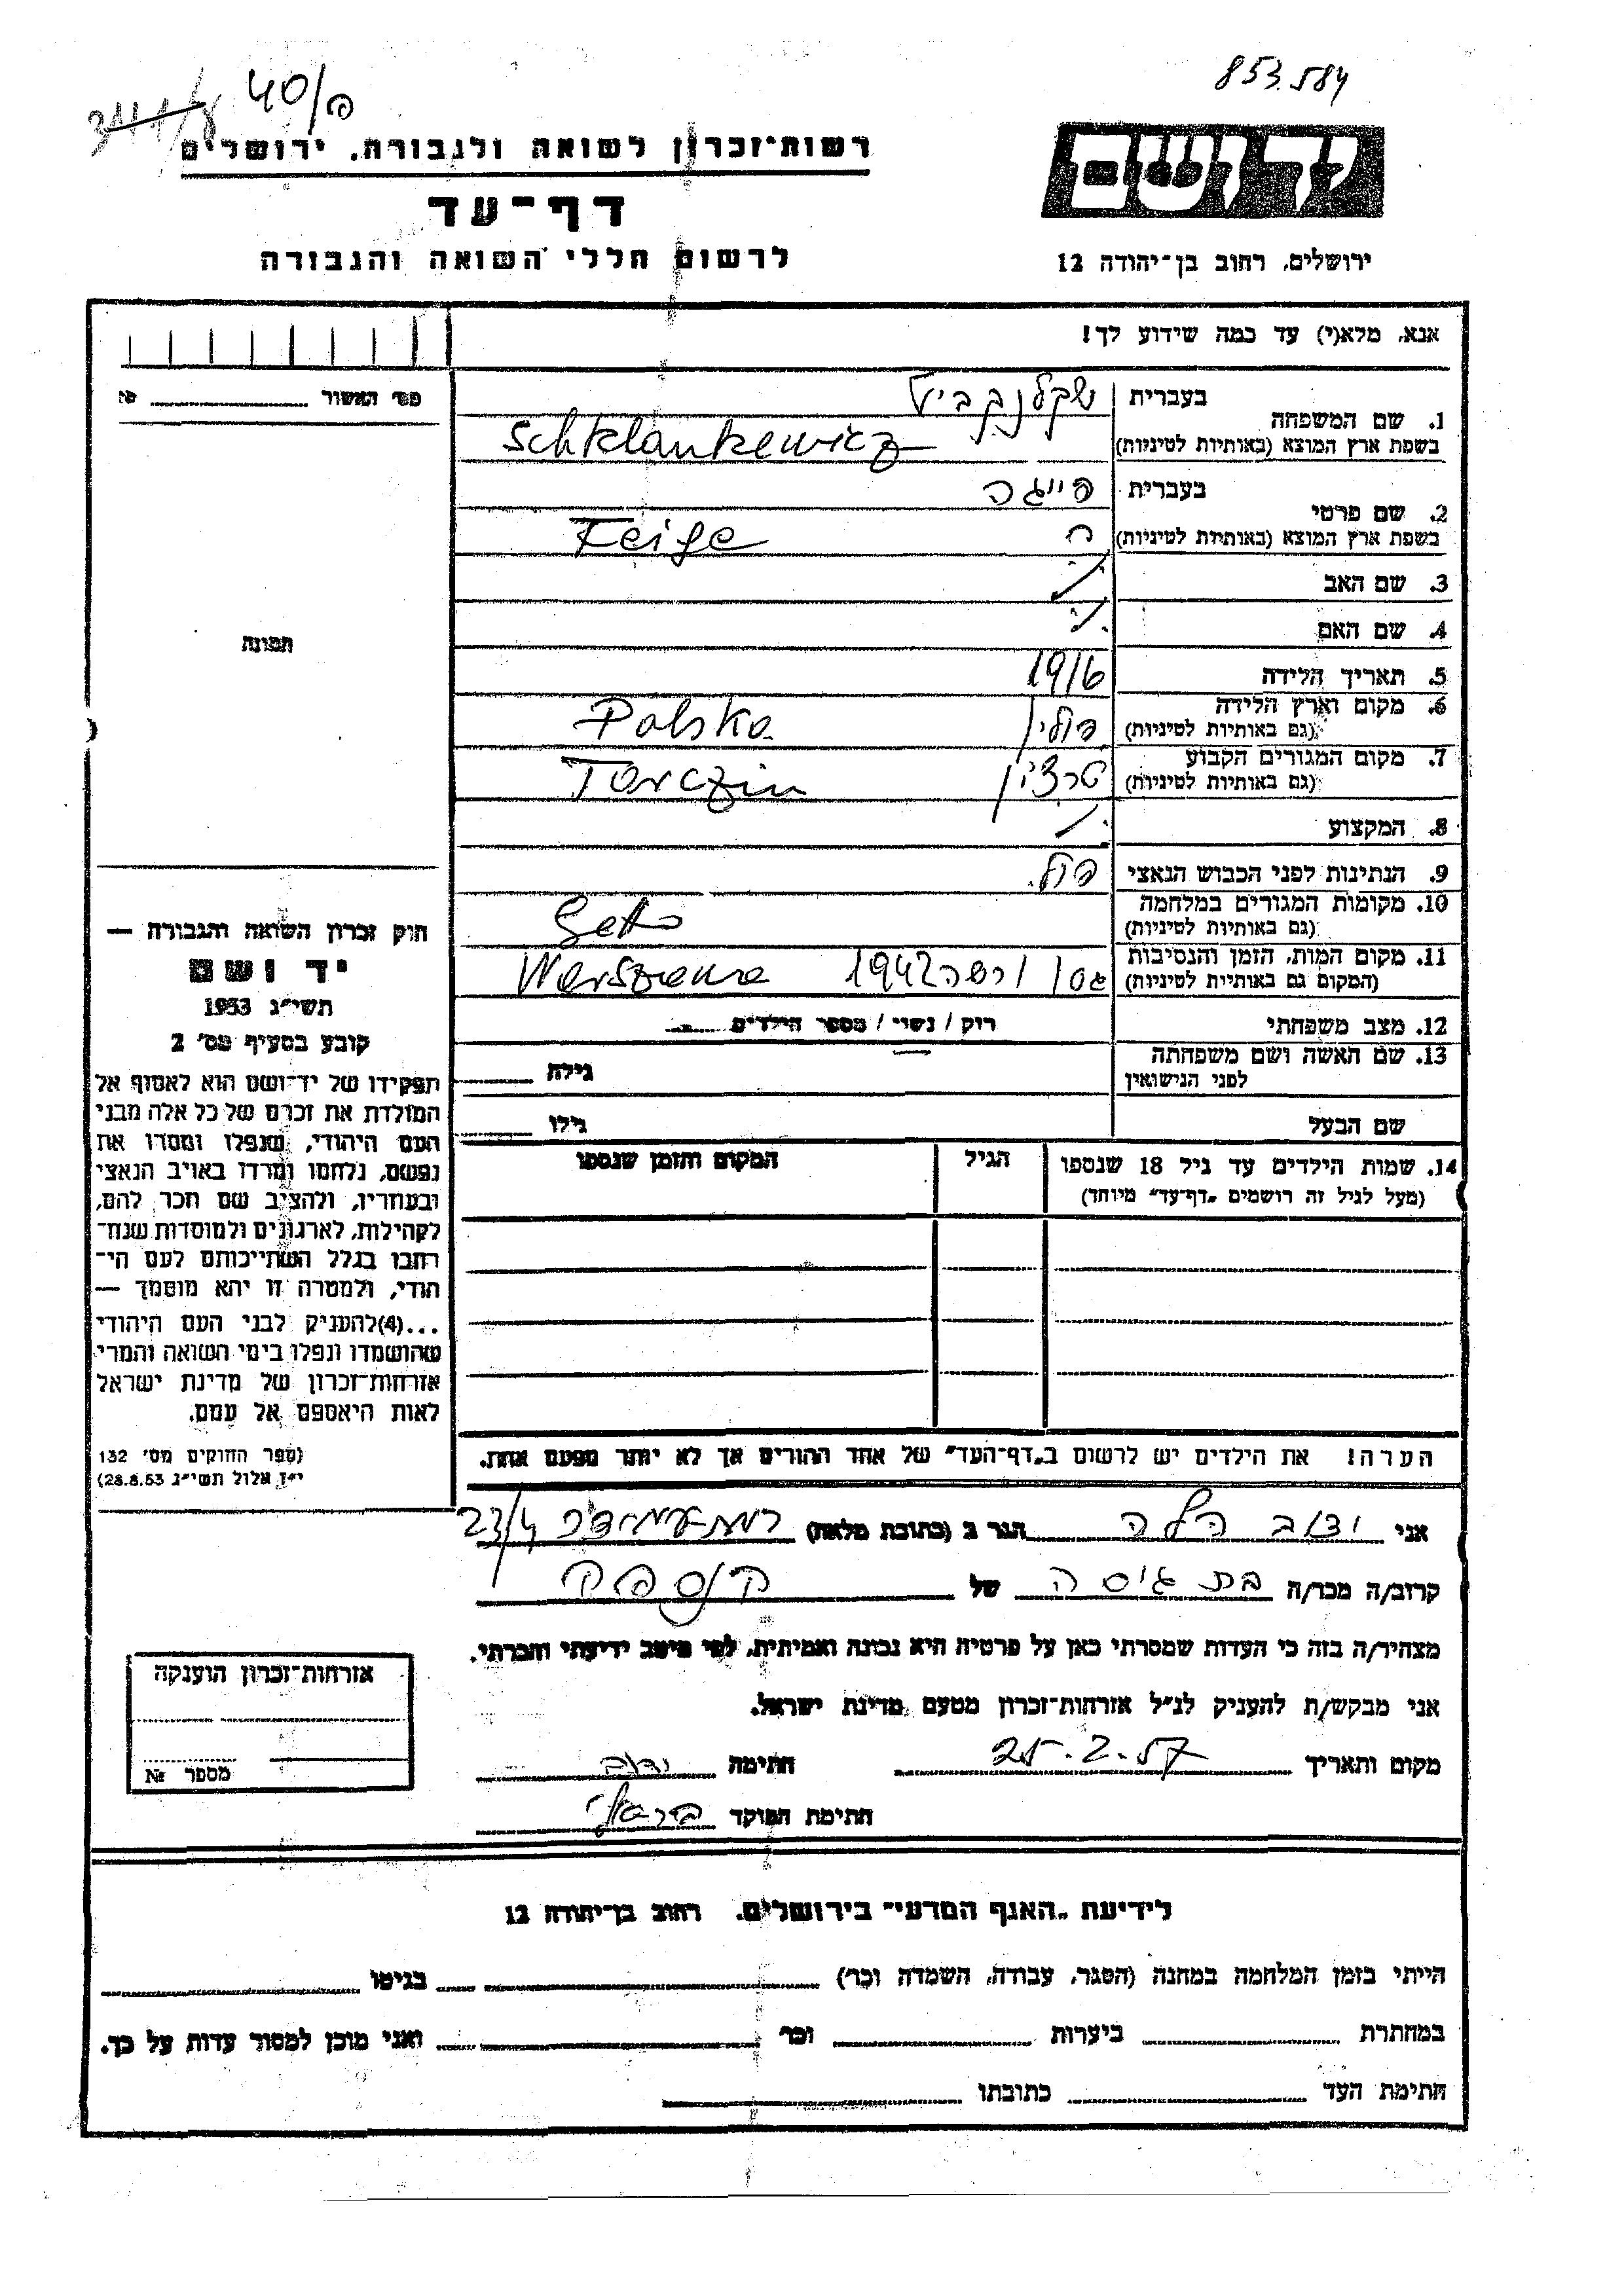 853.584
40/פ
רשות־זכרון לשואה ולגבורה, ירושלים
דף־עד
לרשום חללי השואה והגבורה
יד ושם
ירושלים, רחוב בן־יהודה 12
אנא, מלא(י) עד כמה שידוע לך!
מס׳ האשור №
1. שם המשפחה
בעברית שקלנקביץ
בשפת ארץ המוצא (באותיות לטיניות) Schklankewicz
2. שם פרטי
בעברית פייגה
בשפת ארץ המוצא (באותיות לטיניות) Feige
3. שם האב
4. שם האם
5. תאריך הלידה 1916
6. מקום וארץ הלידה
(גם באותיות לטיניות) פולין Polska
7. מקום המגורים הקבוע
(גם באותיות לטיניות) טרצין Tarczin
8. המקצוע
9. הנתינות לפני הכבוש הנאצי פול.
10. מקומות המגורים במלחמה
(גם באותיות לטיניות) Getto
11. מקום המות, הזמן והנסיבות
(המקום גם באותיות לטיניות) גטו ורשה 1942 Warszawa
12. מצב משפחתי רוק / נשוי / מספר הילדים
13. שם האשה ושם משפחתה
לפני הנישואין גילה
שם הבעל גילו
14. שמות הילדים עד גיל 18 שנספו
(מעל לגיל זה רושמים „דף־עד״ מיוחד)
הגיל
המקום והזמן שנספו
הערה! את הילדים יש לרשום ב„דף־העד״ של אחד ההורים אך לא יותר מפעם אחת.
תמונה
חוק זכרון השואה והגבורה —
יד ושם
תשי״ג 1953
קובע בסעיף מס׳ 2
תפקידו של יד־ושם הוא לאסוף אל
המולדת את זכרם של כל אלה מבני
העם היהודי, שנפלו ומסרו את
נפשם, נלחמו ומרדו באויב הנאצי
ובעוזריו, ולהציב שם וזכר להם,
לקהילות, לארגונים ולמוסדות שנח־
רבו בגלל השתייכותם לעם הי־
הודי, ולמטרה זו יהא מוסמך —
...(4)להעניק לבני העם היהודי
שהושמדו ונפלו בימי השואה והמרי
אזרחות־זכרון של מדינת ישראל
לאות היאספם אל עמם.
(ספר החוקים מס׳ 132
י״ז אלול תשי״ג 28.8.53)
אני הלה הגר ב (כתובת מלאה) 23/4
קרוב/ה מכר/ה בת גיסה של
מצהיר/ה בזה כי העדות שמסרתי כאן על פרטיה היא נכונה ואמיתית, לפי מיטב ידיעתי והכרתי.
אני מבקש/ת להעניק לנ״ל אזרחות־זכרון מטעם מדינת ישראל.
מקום ותאריך 25.2.57 חתימה
חתימת הפוקד
אזרחות־זכרון הוענקה
מספר №
לידיעת „האגף המדעי״ בירושלים, רחוב בן־יהודה 12
הייתי בזמן המלחמה במחנה (הסגר, עבודה, השמדה וכו׳) בגיטו
במחתרת ביערות וכו׳ ואני מוכן למסור עדות על כך.
חתימת העד כתובתו